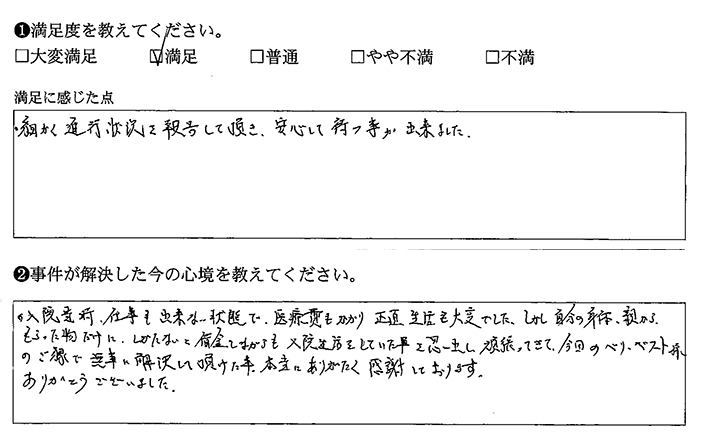 ❶満足度を教えてください。
□大変満足 ☑満足 □普通 □やや不満 □不満
満足に感じた点
・細かく進行状況を報告して頂き、安心して待つ事が出来ました。
❷事件が解決した今の心境を教えてください。
入院費行、仕事も出来ない状態で、医療費もかかり正直生活も大変でした。しかし自分の身体、親から
もらった物だけに、しかたないと借金しながらも入院生活をしていた事を思い出し頑張ってきて、今回のベリーベスト様
のご縁で無事に解決して頂けた事、本当にありがたく感謝しております。
ありがとうございました。